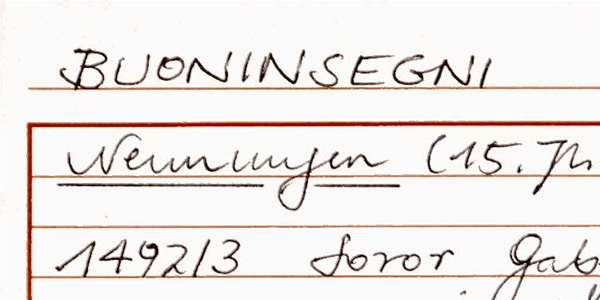 BUONINSEGNI
Nennungen (15. Jh.
1492/3 Soror Gab